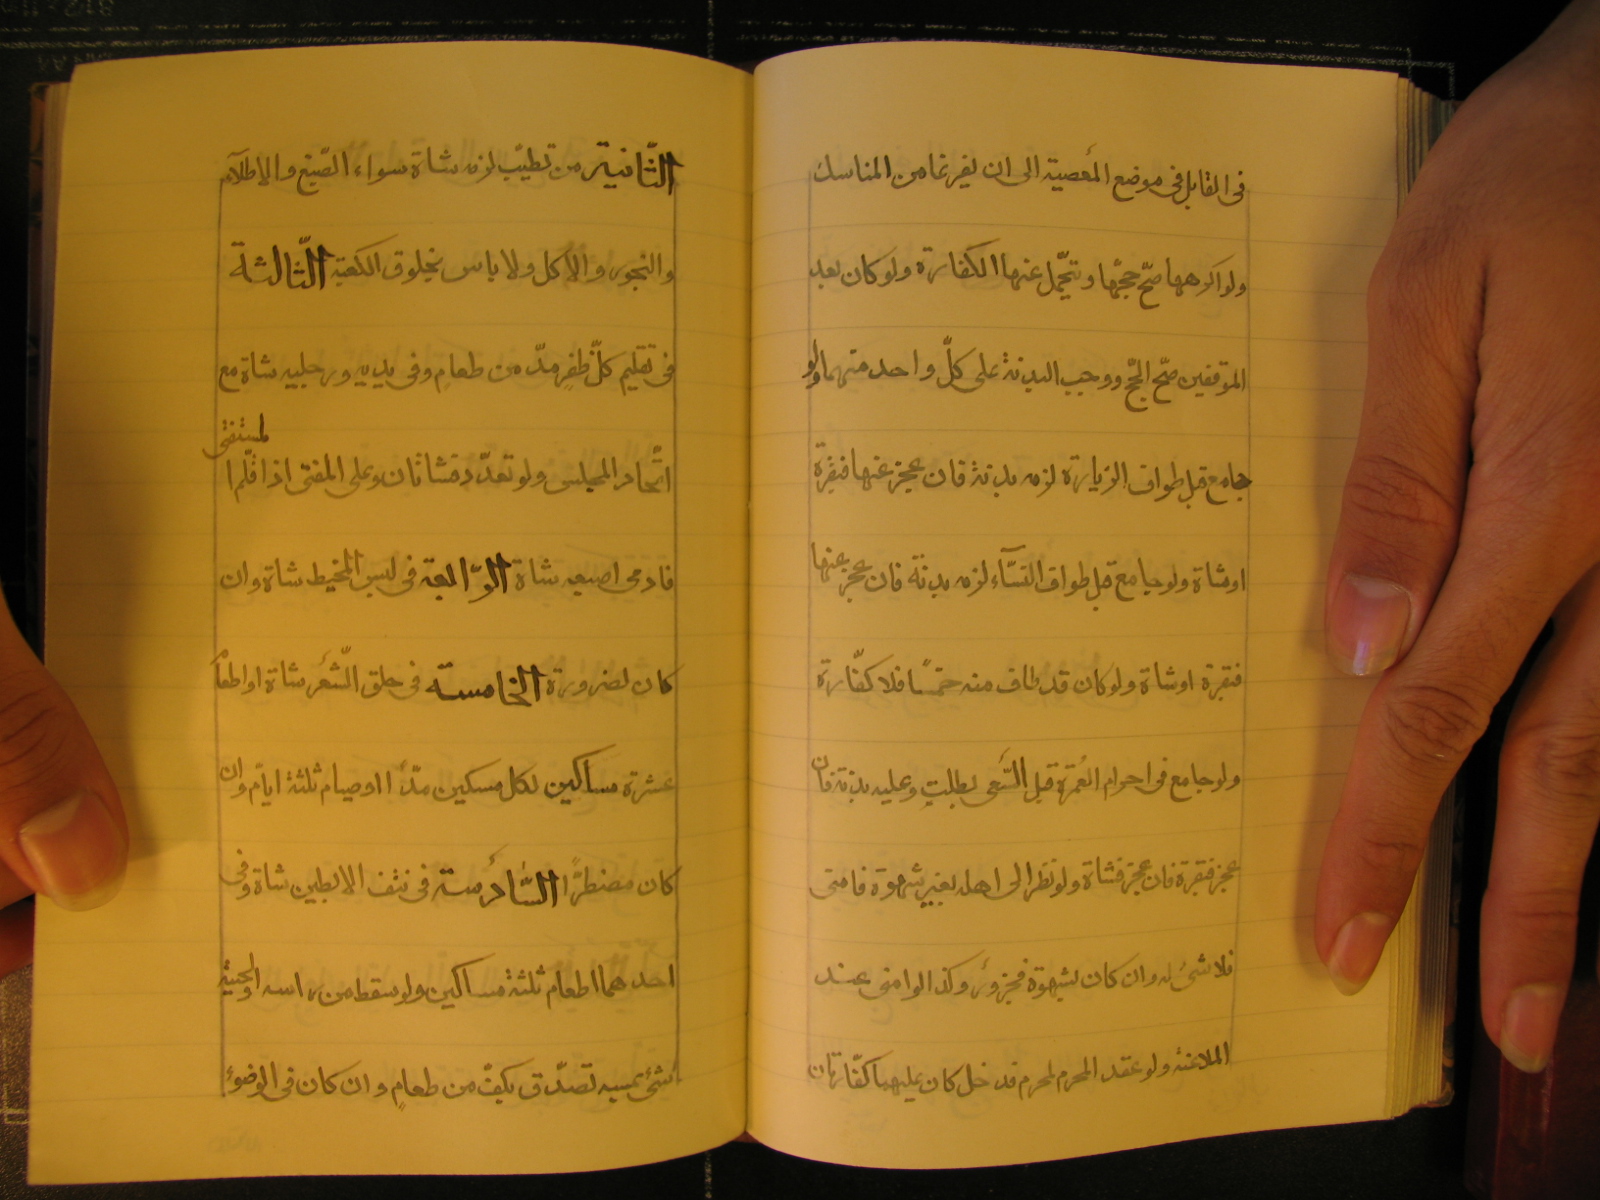 فى القابل فى موضع المعصية الى ان يفرغا من المناسك
ولو اكرهها صحّ حجّها و يتحمّل عنها الكفارة ولو كان بعد
الموقفين صحّ الحجّ ووجب البدنة على كلّ واحد منهما ولو
جامع قبل طواف الزيارة لزمه بدنة فان عجز عنها فبقرة
اوشاة ولو جامع قبل طواف النسّاء لزمه بدنة فان عجز عنها
فبقرة اوشاة ولو كان قد طاف منه خمسًا فلا كفّارة
ولو جامع فى احرام العُمرة قبل السّعى بطلت وعليه بدنة فان
عجز فبقرة فان عجز فشاة ولو نظر الى اهله بغير شهوة فامنى
فلا شئ له وان كان بشهوة فجزور وكذا لو امنى عند
الملاعبة ولو عقد المحرم لمحرم فدخل كان عليهما كفّارتان
الثّانية من تطيّب لزمه شاة سواء الصّبغ والاطلاء
والبخور والاكل ولا باس بخلوق الكعبة الثّالثة
فى تقليم كلّ ظفرٍ مدّ من طعامٍ وفى يديه ورجليه شاة مع
اتّحاد المجلس ولو تعدّد فشاتان وعلى المفتى اذا قلّم المستفتى
فادمى اصبعه شاة الرّابعة فى لبس المخيط شاة وان
كان لضرورة الخامسة فى حلق الشّعر شاة او اطعام
عشرة مساكين لكل مسكين مدّ او صيام ثلثة ايّام وان
كان مضطرًّا السّادسة فى نتف الابطين شاة وفى
احدهما اطعام ثلثة مساكين ولو سقط من راسه او لحيته
شئ بمسه تصدّق بكفّ من طعامٍ وان كان فى الوضوء